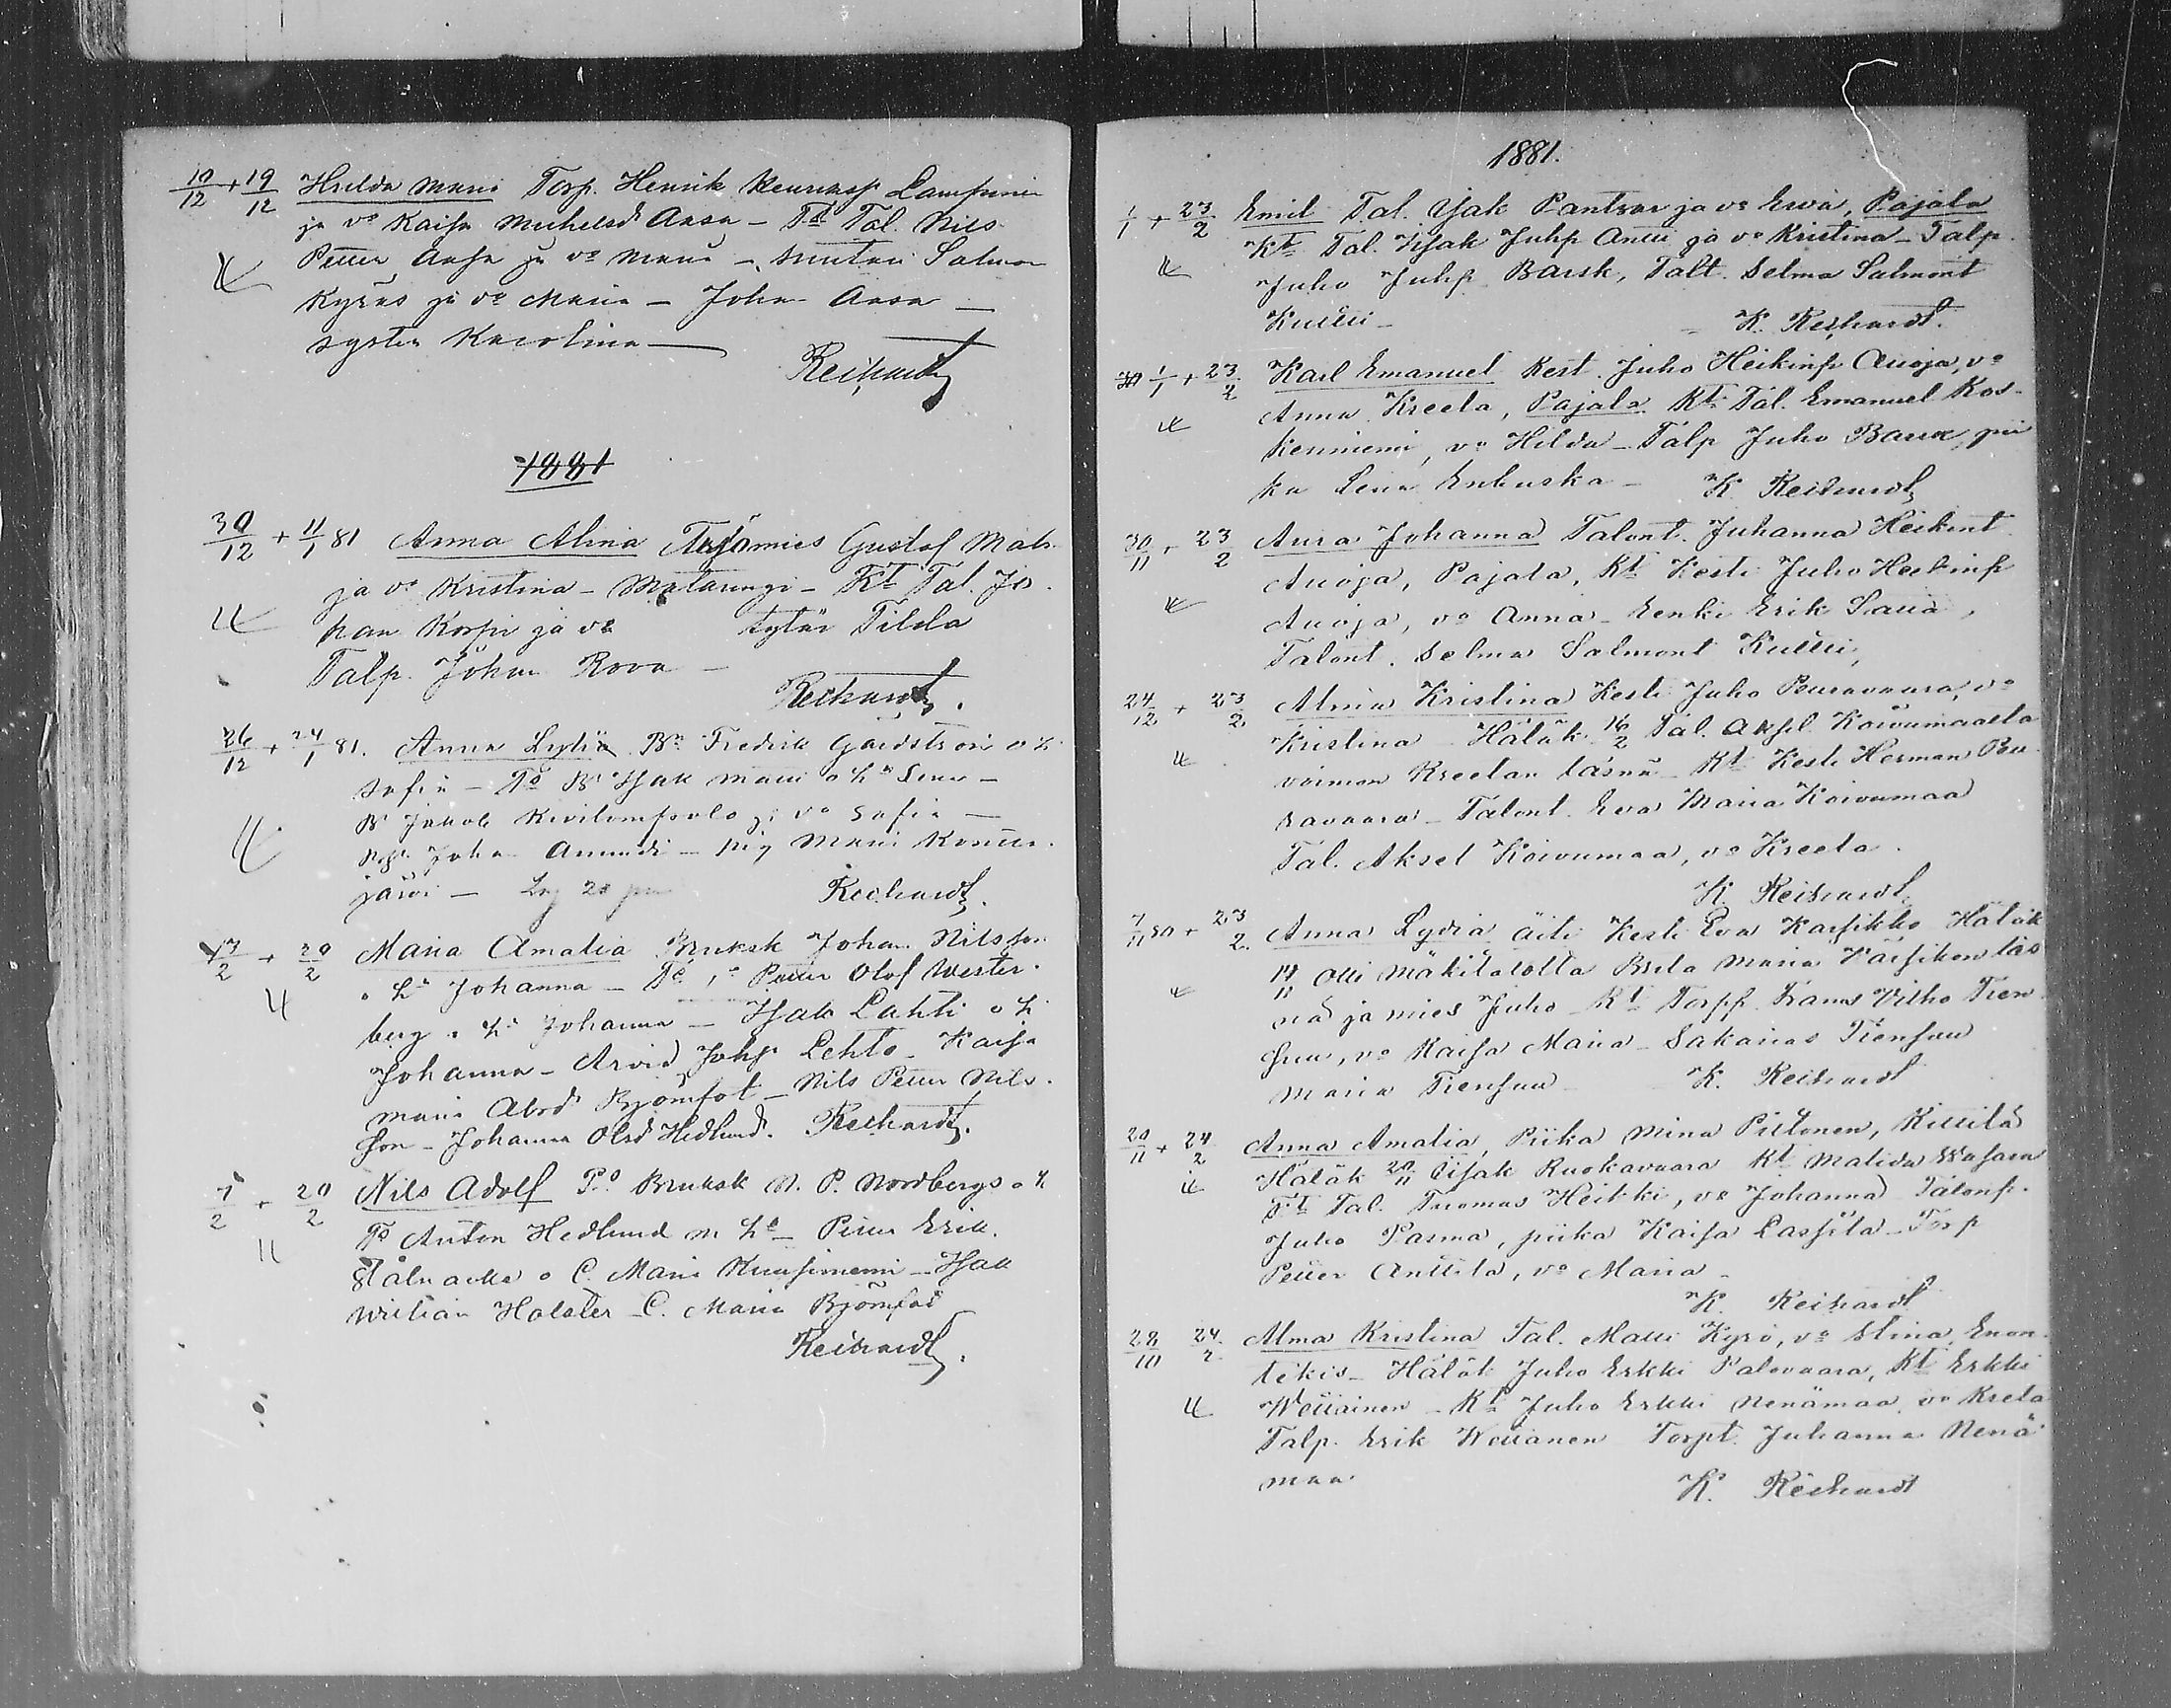 10/12 + 19/12 Hulda Maria Torp. Henrik Lampinen
ja vo Kaisa Michelsd Aasa - Tt Tal. Nils
Petter Aasa ja vo Maria - Salmon
Kyrös ja vo Maria - Johan Aasa -
syster Karolina -
Reichardt
1881
30/12 + 11/1 81 Anna Alina Työmies Gustaf Mats.
ja vo Kristina - Matarengi - Kt Tal. Jo-
han Korpi ja vo tytär Tilda
Talp. Johan Rova -
Reichardt.
26/12 + 24/1 81. Anna Lydia Bn Fredrik o h.
Sofia - To Bn Isak o ho Lena -
Bn Jakob ja vo Sofia -
Johan - pig Maria
järvi -
Reichardt.
13/2 + 20/2 Maria Amalia Bruksk Johan Nilsson
o ho Johanna - Petter Olof Wester-
berg o ho Johanna - Isak Lahti o h
Johanna - Arvid Johss Lehto - Kaisa
Maria Abrd Björnfot - Nils Petter Nils-
son - Johanna Olsd Hedlund. Reichardt.
7/2 + 20/2 Nils Adolf Po Bruksk N. P. Nordbergs o h
To Anton Hedlund m ho - Petter Erik
o C. Maria Kuusiniemi - Isak
Wilian Holster - C. Maria Björnfot
Reichardt.
1881.
1/1 + 23/2 Emil Tal. Isak Pantsar ja vo Ewa, Pajala
Kt Tal. Isak Juhp Antti ja vo Kristina - Talp.
Juho Juhp Barsk, Talt. Selma Salmont
Kuitti - K. Reichardt.
1/1 + 23/2 Karl Emanuel Kest. Juho Heikinp Auoja, vo
Anna Kreeta, Pajala Kt Tal. Emanuel Kos-
kenniemi, vo Hilda - Talp Juho pii
ka Lena - K Reichardt
30/11 + 23/2 Aura Johanna Talont. Juhanna Heikint
Auoja, Pajala, Kt Kesti Juho Heikinp
Auoja, vo Anna - Renki Erik
Talont. Selma Salmont Kuitti,
24/12 + 23/2 Alma Kristina Kesti Juho Peuravaara, vo
Kristina Hätäk. 16/2 Tal. Aksel Koivumaalta
vaimon Kreetan läsnä - Kt Kesti Herman Peu
ravaara - Talont. Eva Maria Koivumaa
Tal. Aksel Koivumaa, vo Kreeta.
K. Reichardt
7/11 80 + 23/2. Anna Lydia äiti Kesti Eva Karsikko Hätäk
14/11 Olli Mäkitalolta Brita Maria läs
nä ja mies Juho - Kt Torpp. Frans Vilho Tien
suu, vo Kaisa Maria - Sakarias Tiensuu
Maria Tiensuu K. Reichardt
20/11 + 24/2 Anna Amalia, Piika Mina Pittonen, Kittilä
Hätäk 20/11 Iisak Ruokavaara Kt Matilda Wasara
Tt Tal. Tuomas Heikki, vo Johanna Talonp.
Juho Parma, piika Kaisa Lassila - Torp
Petter Anttila, vo Maria -
K. Reichardt
28/10 24/2 Alma Kristina Tal. Matti Kyrö, vo Stina, Enon-
tekis - Hätäk Juho Erkki Palovaara, Kt Erkki
Wettainen - Kt Juho Erkki Nenämaa vo Kreta
Talp. Erik Wettanen Torpt. Juhanna Nenä
maa K. Reichardt